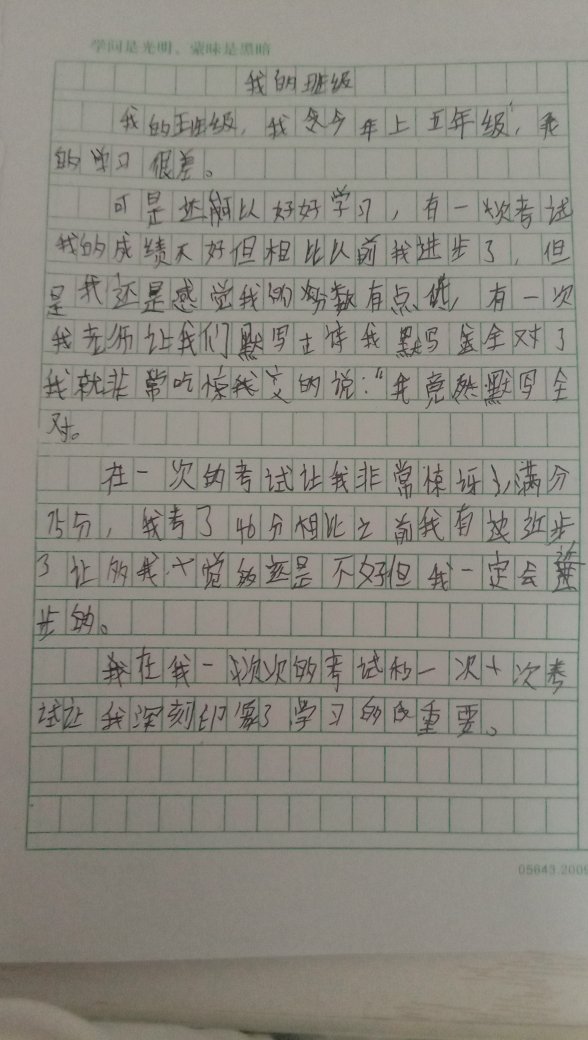 学问是光明、蒙昧是黑暗
我的班级
我的班级，我今年上五年级，我
的学习很差。
可是还可以好好学习，有一次考试
我的成绩不好但相比以前我进步了，但
是我还是感觉我的分数有点低，有一次
我老师让我们默写古诗我默写全对了
我就非常吃惊我的说：“我竟然默写全
对。
在一次的考试让我非常惊讶了，满分
75分，我考了46分相比之前我有进步
了让我觉的还是不好但我一定会进
步的。
我在我一次次的考试和一次十次考
试让我深刻印象了学习的重要。
05643.2009